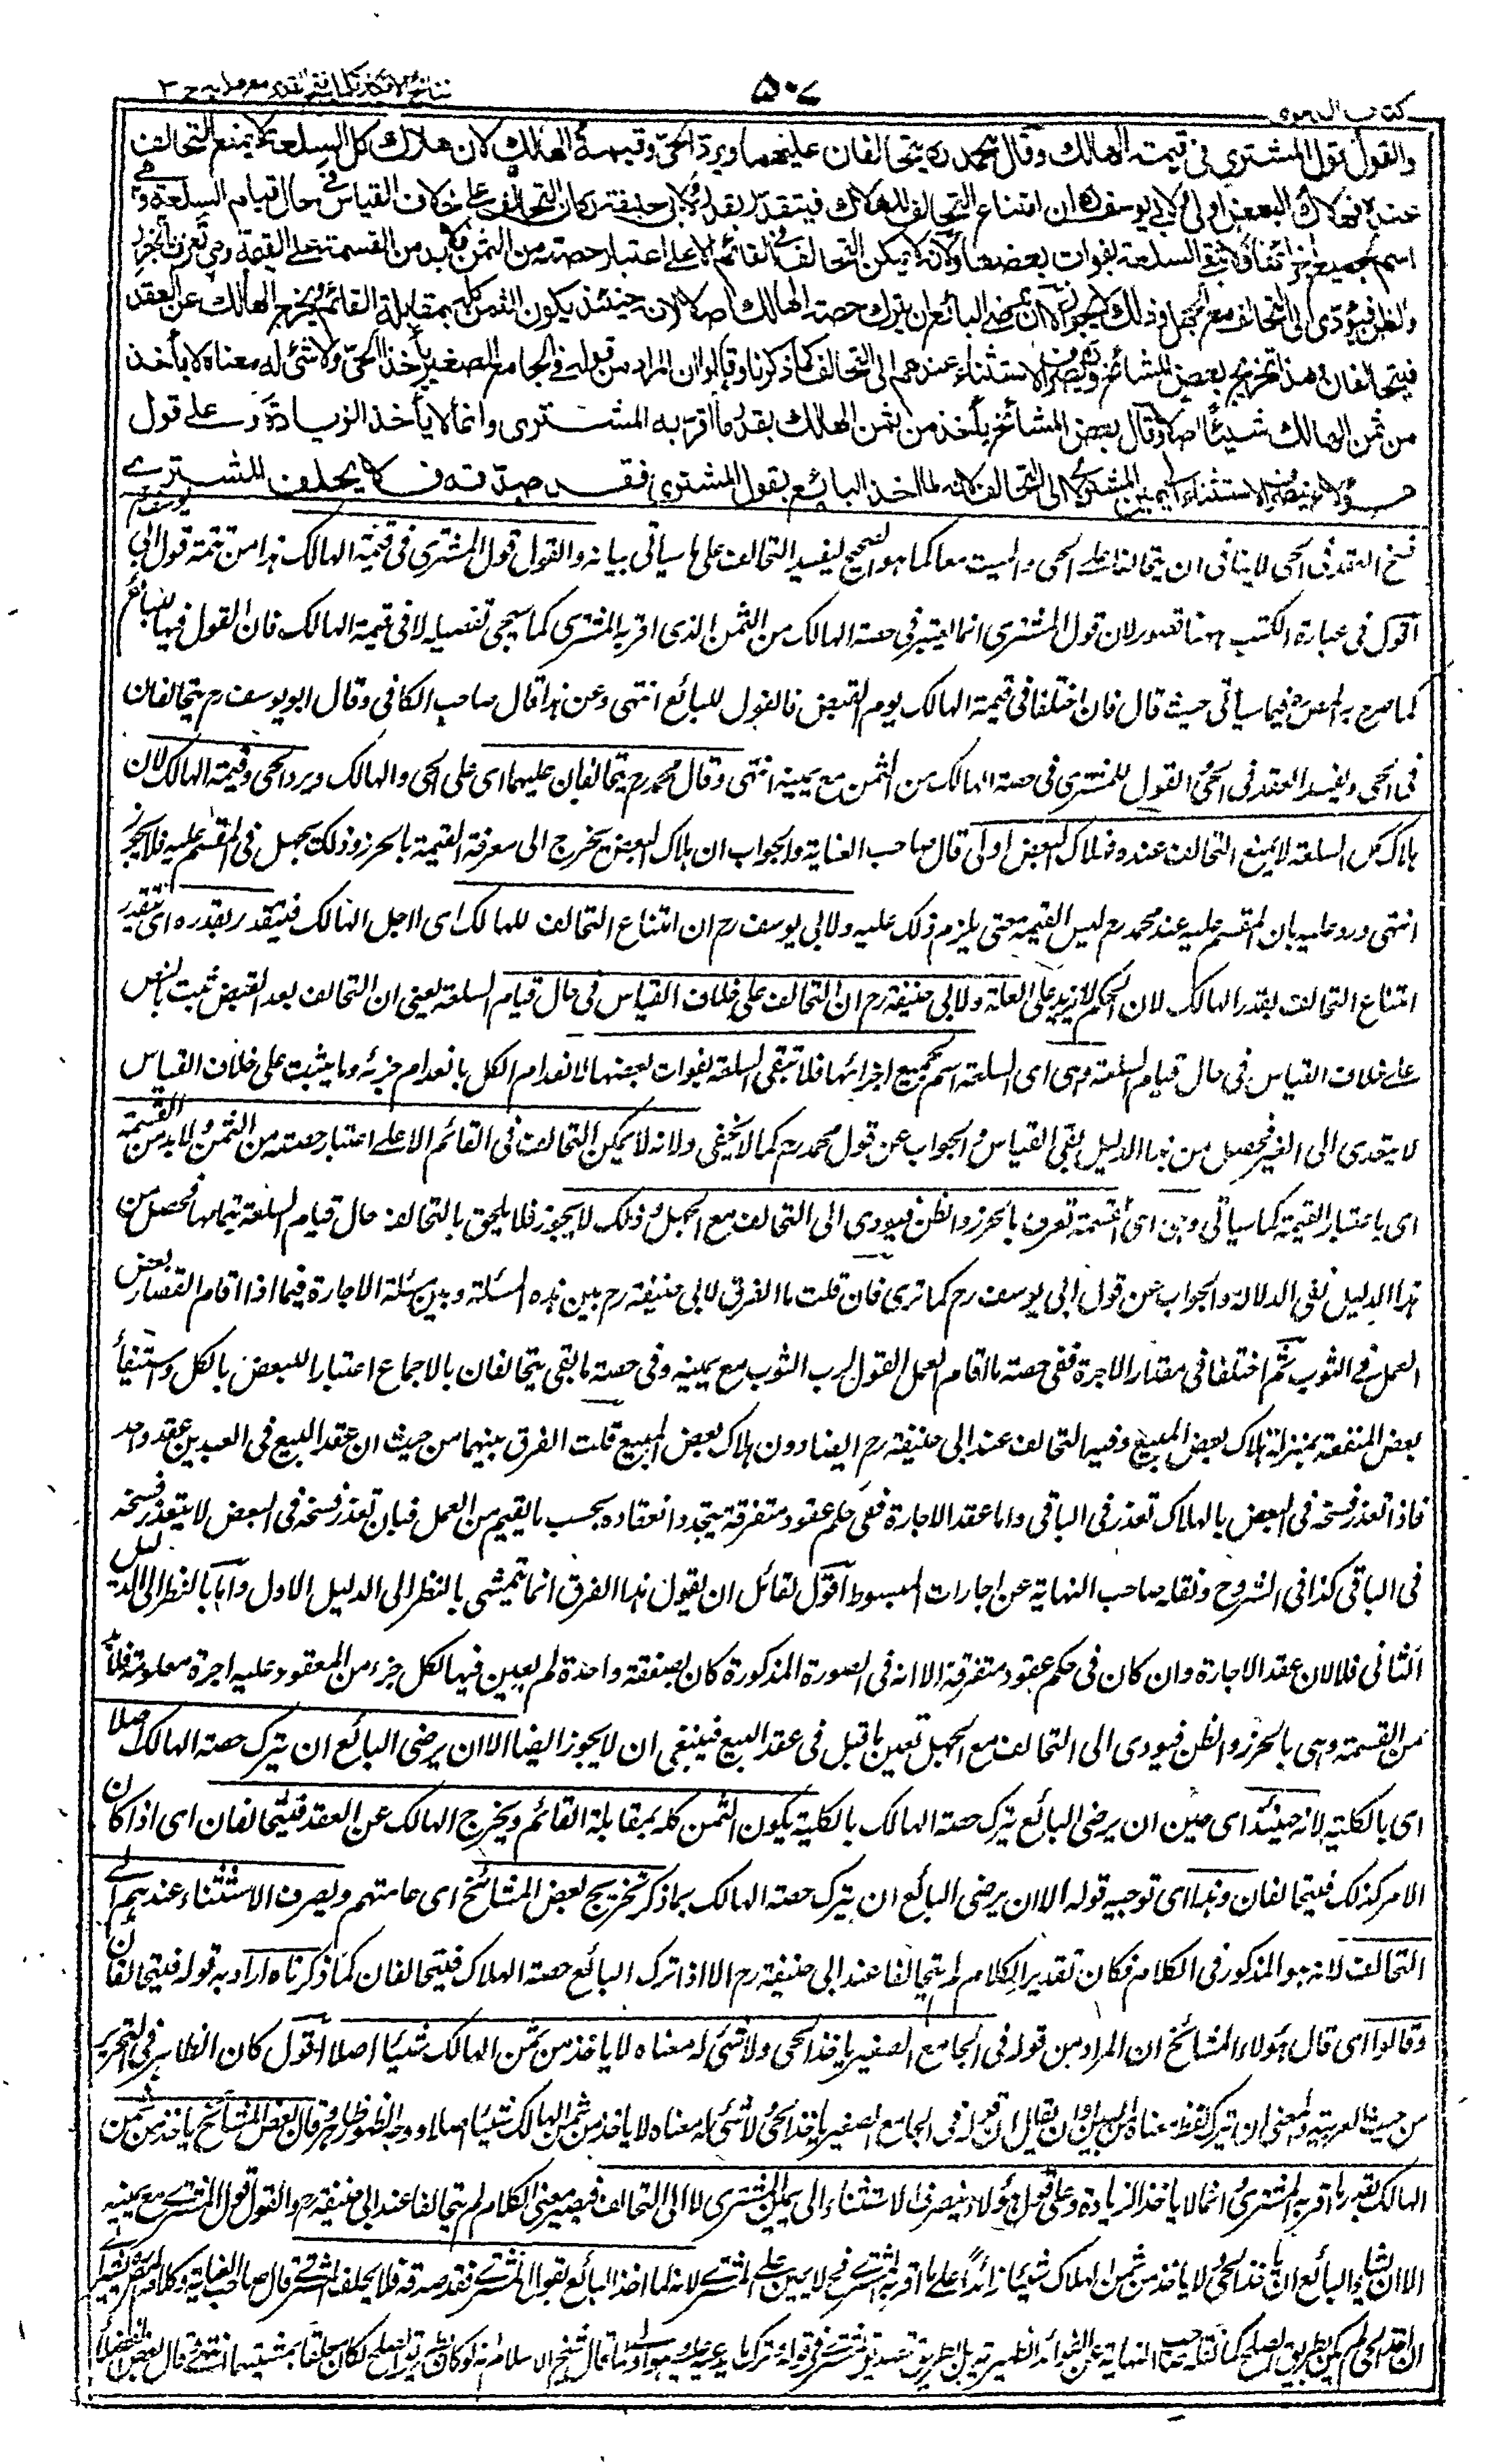 كتاب الدعوى
٥٠٧
نتائج الافكار تكملة فتح القدير مع هدايه ج ٣
والقول قول المشتري في قيمة الهالك وقال محمد ره يتحالفان عليهما ويرد الحي وقيمة الهالك لان هلاك كل السلعة لا يمنع التحالف
عنده فهلاك البعض اولى ولابي يوسف ره ان امتناع التحالف للهلاك فيتقدر بقدره ولابي حنيفة ره ان التحالف على خلاف القياس في حال قيام السلعة وهي
اسم لجميع اجزائها فلا تبقى السلعة لفوات بعضها ولانه لا يمكن التحالف في القائم الا على اعتبار حصته من الثمن فلا بد من القسمة على القيمة وهي تعرف بالحزر
والظن فيؤدي الى التحالف مع الجهل وذلك لا يجوز الا ان يرضى البائع ان يترك حصة الهالك اصلا لانه حينئذ يكون الثمن كله بمقابلة القائم ويخرج الهالك عن العقد
فيتحالفان هذا تخريج بعض المشائخ ويصرف الاستثناء عندهم الى التحالف كما ذكرنا وقالوا ان المراد من قوله في الجامع الصغير يأخذ الحي ولا شئ له معناه لا يأخذ
من ثمن الهالك شيئا اصلا وقال بعض المشائخ يأخذ من ثمن الهالك بقدر ما اقر به المشتري وانما لا يأخذ الزيادة وعلى قول
هؤلاء ينصرف الاستثناء الى يمين المشتري لا الى التحالف لانه لما اخذ البائع بقول المشتري فقد صدقه فلا يحلف المشتري
فسخ العقد في الحي لا ينافي ان يتحالفا على الحي والميت معا كما هو الصحيح ليفيد التحالف على ما سياتي بيانه والقول قول المشتري في قيمة الهالك هذا من تتمة قول ابي يوسف رم
اقول في عبارة الكتب ههنا قصور لان قول المشتري انما يعتبر في حصة الهالك من الثمن الذي اقر به المشتري كما سيجئ تفصيله لا في قيمة الهالك فان القول فيها للبائع
كما صرح به المصره فيما سياتي حيث قال فان اختلفا في قيمة الهالك يوم القبض فالقول للبائع انتهى وعن هذا قال صاحب الكافي وقال ابو يوسف رم يتحالفان
في الحي ويفسد العقد في الحي والقول للمشتري في حصة الهالك من الثمن مع يمينه انتهى وقال محمد رم يتحالفان عليهما اي على الحي والهالك ويرد الحي وقيمة الهالك لان
هلاك كل السلعة لا يمنع التحالف عنده فهلاك البعض اولى قال صاحب العناية والجواب ان هلاك البعض يحوج الى معرفة القيمة بالحزر وذلك يجهل في المقسم عليه فلا يجوز
انتهى ورد عليه بان المقسم عليه عند محمد رم ليس القيمة حتى يلزم ذلك عليه ولابي يوسف رم ان امتناع التحالف للهالك اي لاجل الهالك فيتقدر بقدره اي يتقدر
امتناع التحالف بقدر الهالك لان الحكم لا يزيد على العلة ولابي حنيفة رم ان التحالف على خلاف القياس في حال قيام السلعة يعني ان التحالف بعد القبض ثبت بالنص
على خلاف القياس في حال قيام السلعة وهي اي السلعة اسم لجميع اجزائها فلا تبقى السلعة بفوات بعضها لانعدام الكل بانعدام جزئه وما يثبت على خلاف القياس
لا يتعدى الى الغير فحصل من هذا الدليل نفي القياس والجواب عن قول محمد رم كما لا يخفى ولانه لا يمكن التحالف في القائم الا على اعتبار حصته من الثمن ولا بد من القسمة
اي باعتبار القيمة كما سياتي وهي اي القسمة تعرف بالحزر والظن فيودي الى التحالف مع الجهل وذلك لا يجوز فلا يلحق بالتحالف حال قيام السلعة بتمامها فحصل من
هذا الدليل نفي الدلالة والجواب عن قول ابي يوسف رم كما ترى فان قلت ما الفرق لابي حنيفة رم بين هذه المسئلة وبين مسئلة الاجارة فيما اذا اقام القصار بعض
العمل في الثوب ثم اختلفا في مقدار الاجرة ففي حصة ما اقام العمل القول لرب الثوب مع يمينه وفي حصة ما بقي يتحالفان بالاجماع اعتبارا للبعض بالكل واستيفاء
بعض المنفعة بمنزلة هلاك بعض المبيع وفيه التحالف عند ابي حنيفة رم ايضا دون هلاك بعض المبيع قلت الفرق بينهما من حيث ان عقد البيع في العبدين عقد واحد
فاذا تعذر فسخه في البعض بالهلاك تعذر في الباقي واما عقد الاجارة ففي حكم عقود متفرقة يتجدد انعقاده بحسب ما يقيم من العمل فبان تعذر فسخه في البعض لا يتعذر فسخه
في الباقي كذا في الشروح ونقله صاحب النهاية عن اجارات المبسوط اقول لقائل ان يقول هذا الفرق انما يتمشى بالنظر الى الدليل الاول واما بالنظر الى الدليل
الثاني فلا لان عقد الاجارة وان كان في حكم عقود متفرقة الا انه في الصورة المذكورة كان بصفقة واحدة لم يعين فيها لكل جزء من المعقود عليه اجرة معلومة فلا بد
من القسمة وهي بالحزر والظن فيودي الى التحالف مع الجهل بعين ما قبل في عقد البيع فينبغي ان لا يجوز ايضا الا ان يرضى البائع ان يترك حصة الهالك اصلا
اي بالكلية لانه حينئذ اي حين ان يرضى البائع بترك حصة الهالك بالكلية يكون الثمن كله بمقابلة القائم ويخرج الهالك عن العقد فيتحالفان اي اذا كان
الامر كذلك فيتحالفان وهذا اي توجيه قوله الا ان يرضى البائع ان يترك حصة الهالك بما ذكر تخريج بعض المشائخ اي عامتهم ويصرف الاستثناء عندهم الى
التحالف لانه هو المذكور في الكلام فكان تقدير الكلام لم يتحالفا عند ابي حنيفة رم الا اذا ترك البائع حصة الهلاك فيتحالفان كما ذكرناه اراد به قوله فيتحالفان
وقالوا اي قال هؤلاء المشائخ ان المراد من قوله في الجامع الصغير ياخذ الحي ولا شئ له معناه لا ياخذ من ثمن الهالك شيئا اصلا اقول كان الظاهر في التحرير
من حيث العربية والمعنى ان يترك لفظة معناه من البين او ان يقال ان قوله في الجامع الصغير ياخذ الحي ولا شئ له معناه لا ياخذ من ثمن الهالك شيئا اصلا ووجه الظهور ظاهر وقال بعض المشائخ ياخذ من ثمن
الهالك بقدر ما اقر به المشتري وانما لا ياخذ الزيادة وعلى قول هؤلاء ينصرف الاستثناء الى يمين المشتري لا الى التحالف فيصير معنى الكلام لم يتحالفا عند ابي حنيفة رم والقول قول المشتري مع يمينه
الا ان يشاء البائع ان ياخذ الحي ولا ياخذ من ثمن الهلاك شيئا زائدا على ما اقر به المشتري فحينئذ لا يمين على المشتري لانه لما اخذ البائع بقول المشتري فقد صدقه فلا يحلف المشتري قال صاحب العناية وكلام
الحي لم يكن بطريق الصلح كما نقله صاحب النهاية عن الفوائد الظهيرية بل بطريق تصديق المشتري في قوله وترك ما يدعيه عليه قال شيخ الاسلام انه لو كان بطريق الصلح لكان معلقا بمشيتهما انتهى قال بعض